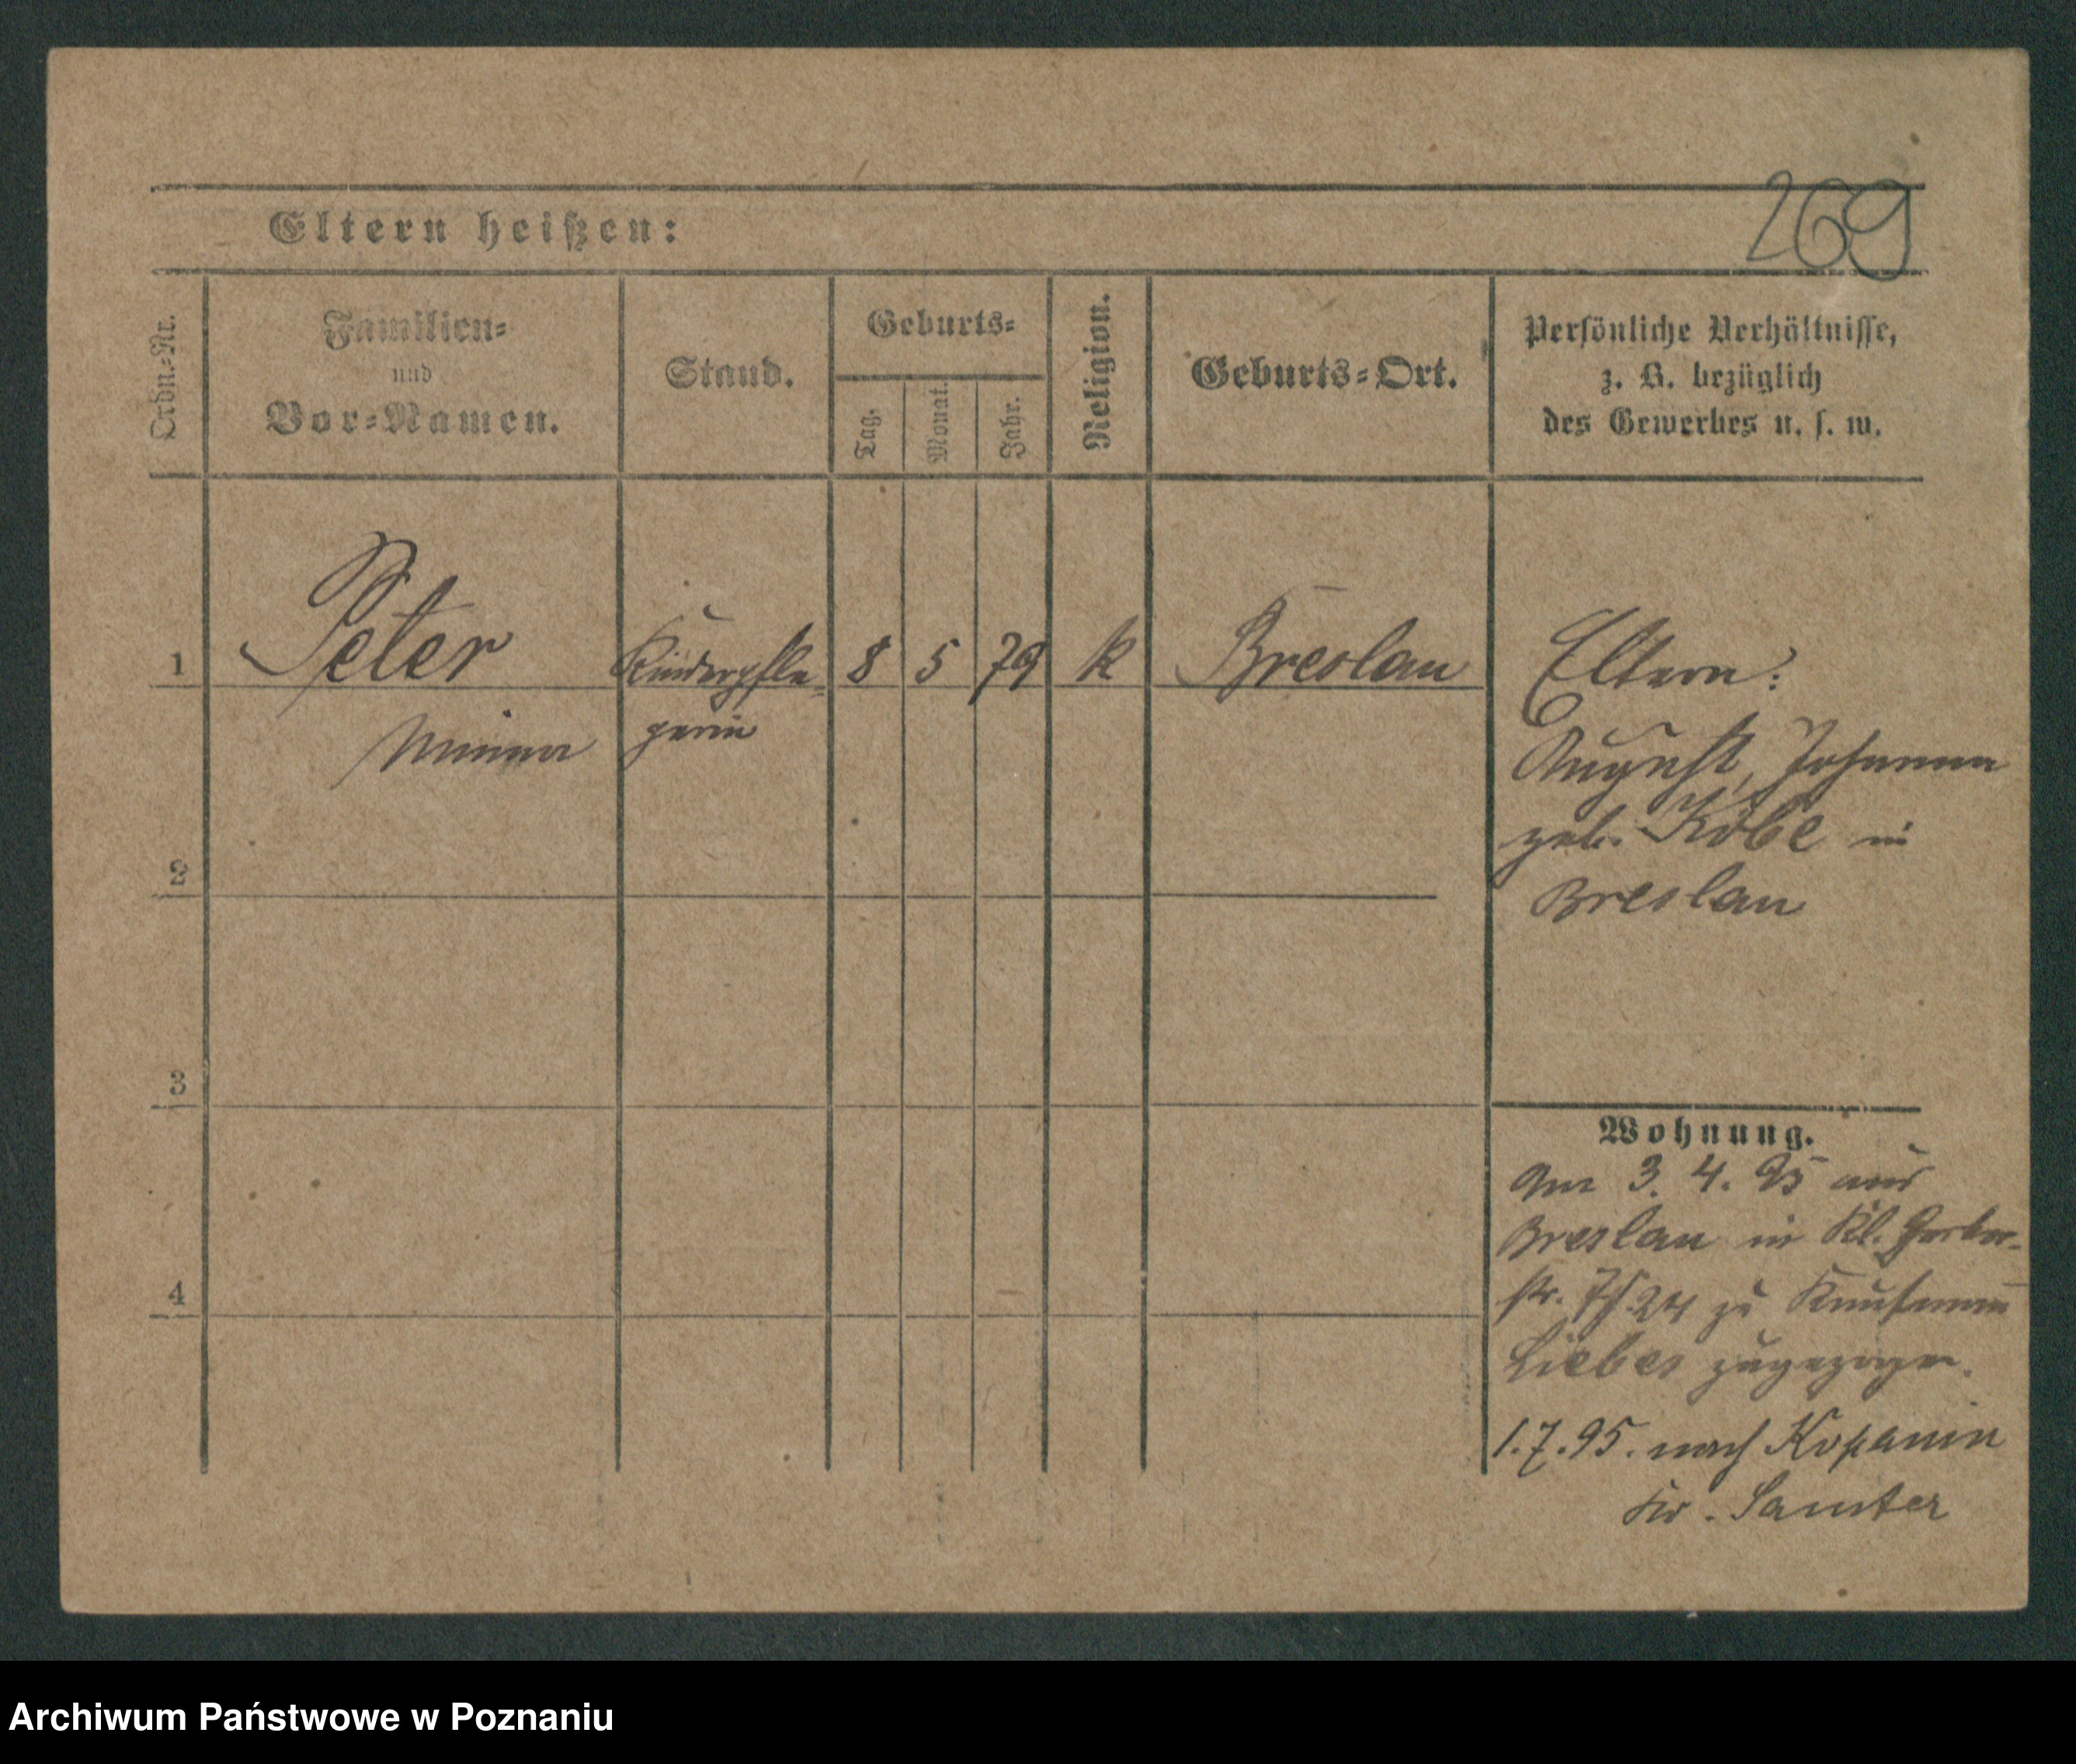 269
Eltern heißen:
Ordn.-Nr.
Familien-
und
Vor-Namen.
Stand.
Geburts-
Tag.
Monat.
Jahr.
Religion.
Geburts-Ort.
Persönliche Verhältnisse,
z. B. bezüglich
des Gewerbes u. s. w.
1
Peter
Minna
Kinderpfle-
gerin
8
5
79
k
Breslau
Eltern:
August, Johanna
geb. Köbe in
Breslau
2
3
4
Wohnung.
Am 3. 4. 95 aus
Breslau in Kl. Gerber-
str. 24 zu Kaufmann
Liebes zugezogen.
1.7.95. nach Kopanin
Kr. Samter
Archiwum Państwowe w Poznaniu